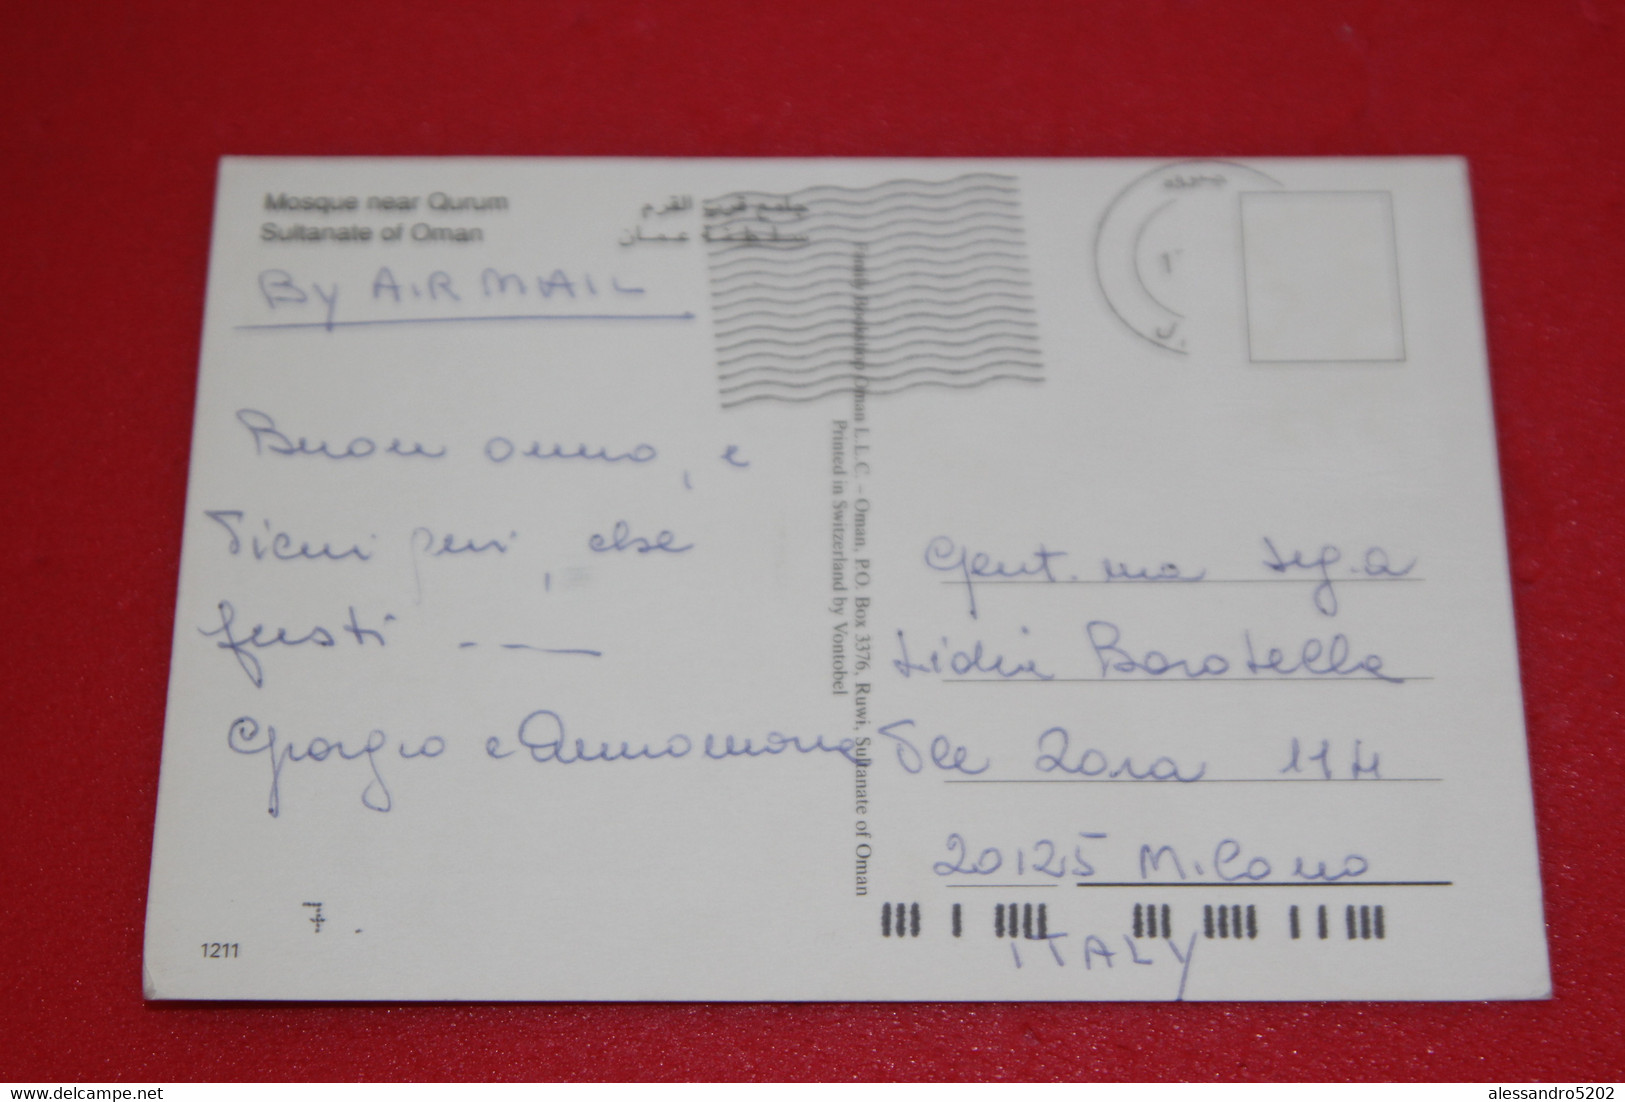 Mosque near Qurum
Sultanate of Oman
جامع قرب القرم
سلطنة عمان
By AIR MAIL
Buon anno, e
che
giusti
Giorgio e Annamaria
Family Bookshop Oman L.L.C. – Oman, P.O. Box 3376, Ruwi, Sultanate of Oman
Printed in Switzerland by Vontobel
Gent.ma Sig.a
Lidia Baratella
V.le Zara 114
20125 Milano
ITALY
7.
1211
Delcampe.net
alessandro5202